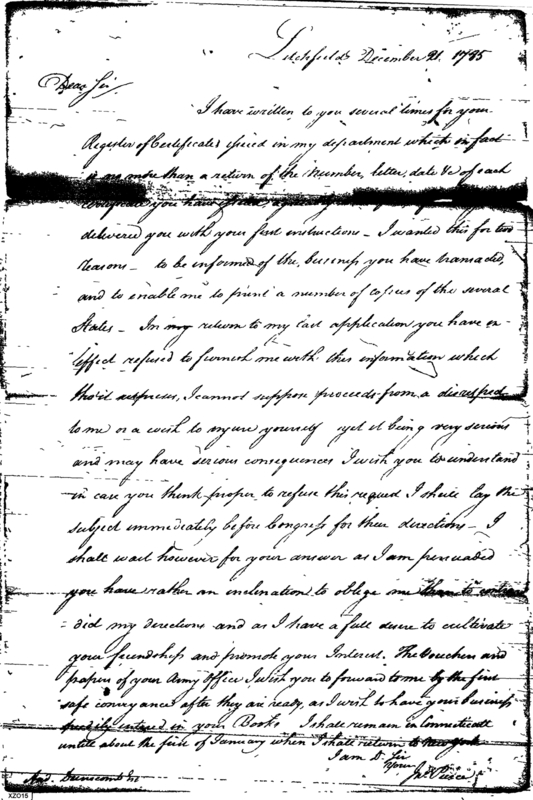 Litchfield December 21. 1785
Dear Sir
I have written to you several times for your
Register of Certificates issued in my department which in fact
is no more than a return of the Number, letter, date &c of each
Certificate you have
delivered you with your first instructions – I wanted this for two
reasons – to be informed of the business you have transacted,
and to enable me to print a number of copies of the several
States – In my return to my last application you have in
effect refused to furnish me with this information which
I cannot suppose proceeds from a disrespect
to me or a wish to injure yourself yet it being very serious
and may have serious consequences I wish you to understand
in case you think proper to refuse this request I shall lay the
subject immediately before Congress for their directions – I
shall wait however for your answer as I am persuaded
you have rather an inclination to oblige me than to contra
= dict my directions and as I have a full desire to cultivate
your friendship and promote your Interest. The Vouchers and
papers of your Army Office I wish you to forward to me by the first
safe conveyance after they are ready, as I wish to have your business
speedily entered in your Books I shall remain in Connecticutt
untill about the first of January when I shall return to New York
I am Dr Sir
Yours
Jno Pierce
And. Dunscomb
XZO15